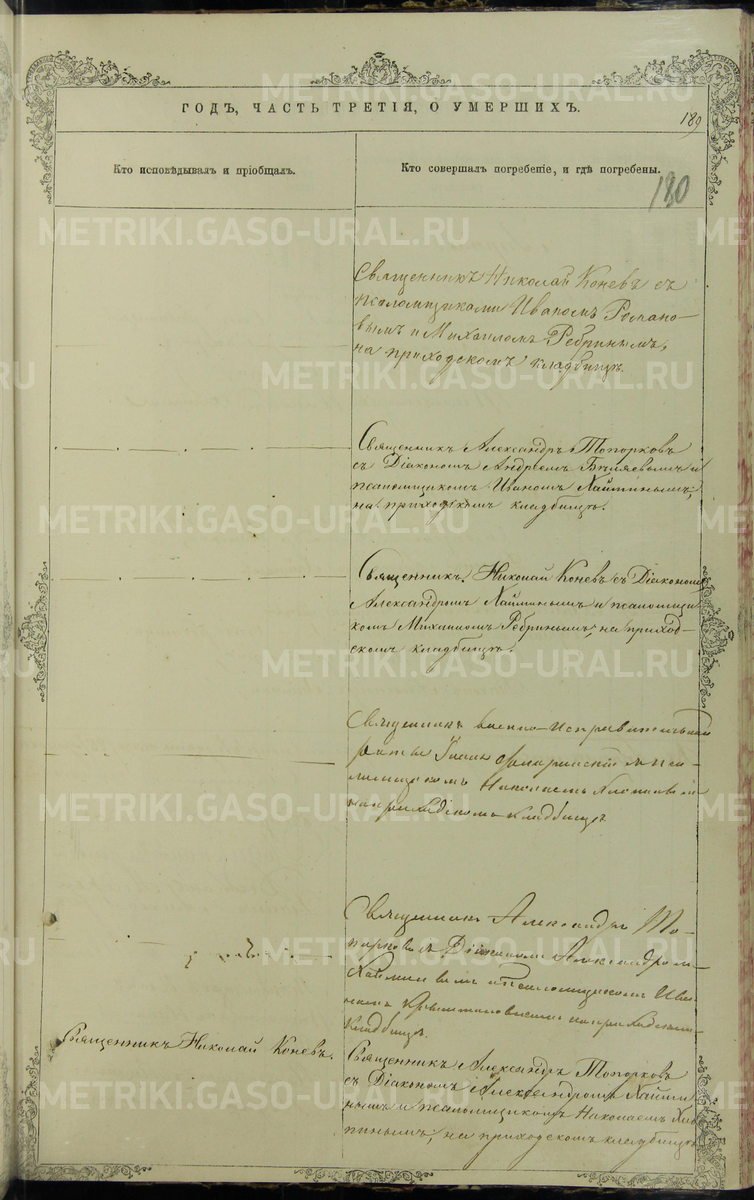 METRIKI.GASO-URAL.RU
ГОДЪ, ЧАСТЬ ТРЕТІЯ, О УМЕРШИХЪ.
189
Кто исповѣдывалъ и пріобщалъ.
Кто совершалъ погребеніе, и гдѣ погребены.
180
Священникъ Николай Коневъ съ
псаломщиками Иваномъ Романо-
вымъ и Михаиломъ Ребринымъ,
на приходскомъ кладбищѣ.
Священникъ Александръ Топорковъ
съ Діакономъ Андреемъ Бѣляевымъ и
псаломщикомъ Иваномъ Хайминымъ,
на приходскомъ кладбищѣ.
Священникъ Николай Коневъ съ Діакономъ
Александромъ Хайминымъ и псаломщи-
комъ Михаиломъ Ребринымъ, на приход-
скомъ кладбищѣ.
Священникъ военно-исправительной
роты съ пса-
ломщикомъ Николаемъ
на приходскомъ кладбищѣ
Священникъ Александръ То-
порковъ съ Діакономъ Александромъ
Хайминымъ и псаломщикомъ Ива-
номъ на приходскомъ
кладбищѣ.
Священникъ Николай Коневъ.
Священникъ Александръ Топорковъ
съ Діакономъ Александромъ Хайми-
нымъ и псаломщикомъ Николаемъ
на приходскомъ кладбищѣ